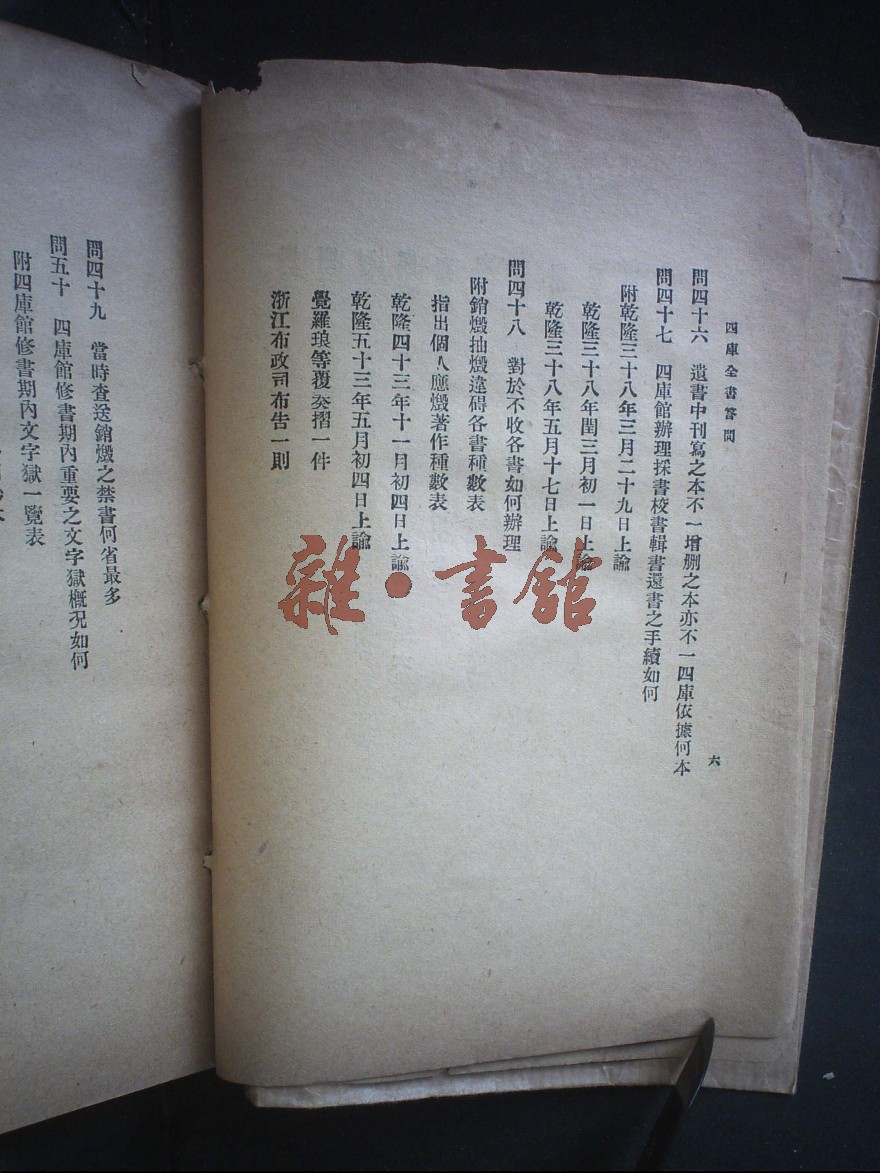 四庫全書答問
六
問四十六　遺書中刊寫之本不一增删之本亦不一四庫依據何本
問四十七　四庫館辦理採書校書輯書還書之手續如何
附乾隆三十八年三月二十九日上諭
乾隆三十八年閏三月初一日上諭
乾隆三十八年五月十七日上諭
問四十八　對於不收各書如何辦理
附銷燬抽燬違碍各書種數表
指出個人應燬著作種數表
乾隆四十三年十一月初四日上諭
乾隆五十三年五月初四日上諭
覺羅琅等覆奏摺一件
浙江布政司布告一則
問四十九　當時查送銷燬之禁書何省最多
問五十　四庫館修書期內重要之文字獄概況如何
附四庫館修書期內文字獄一覽表
雜·書館